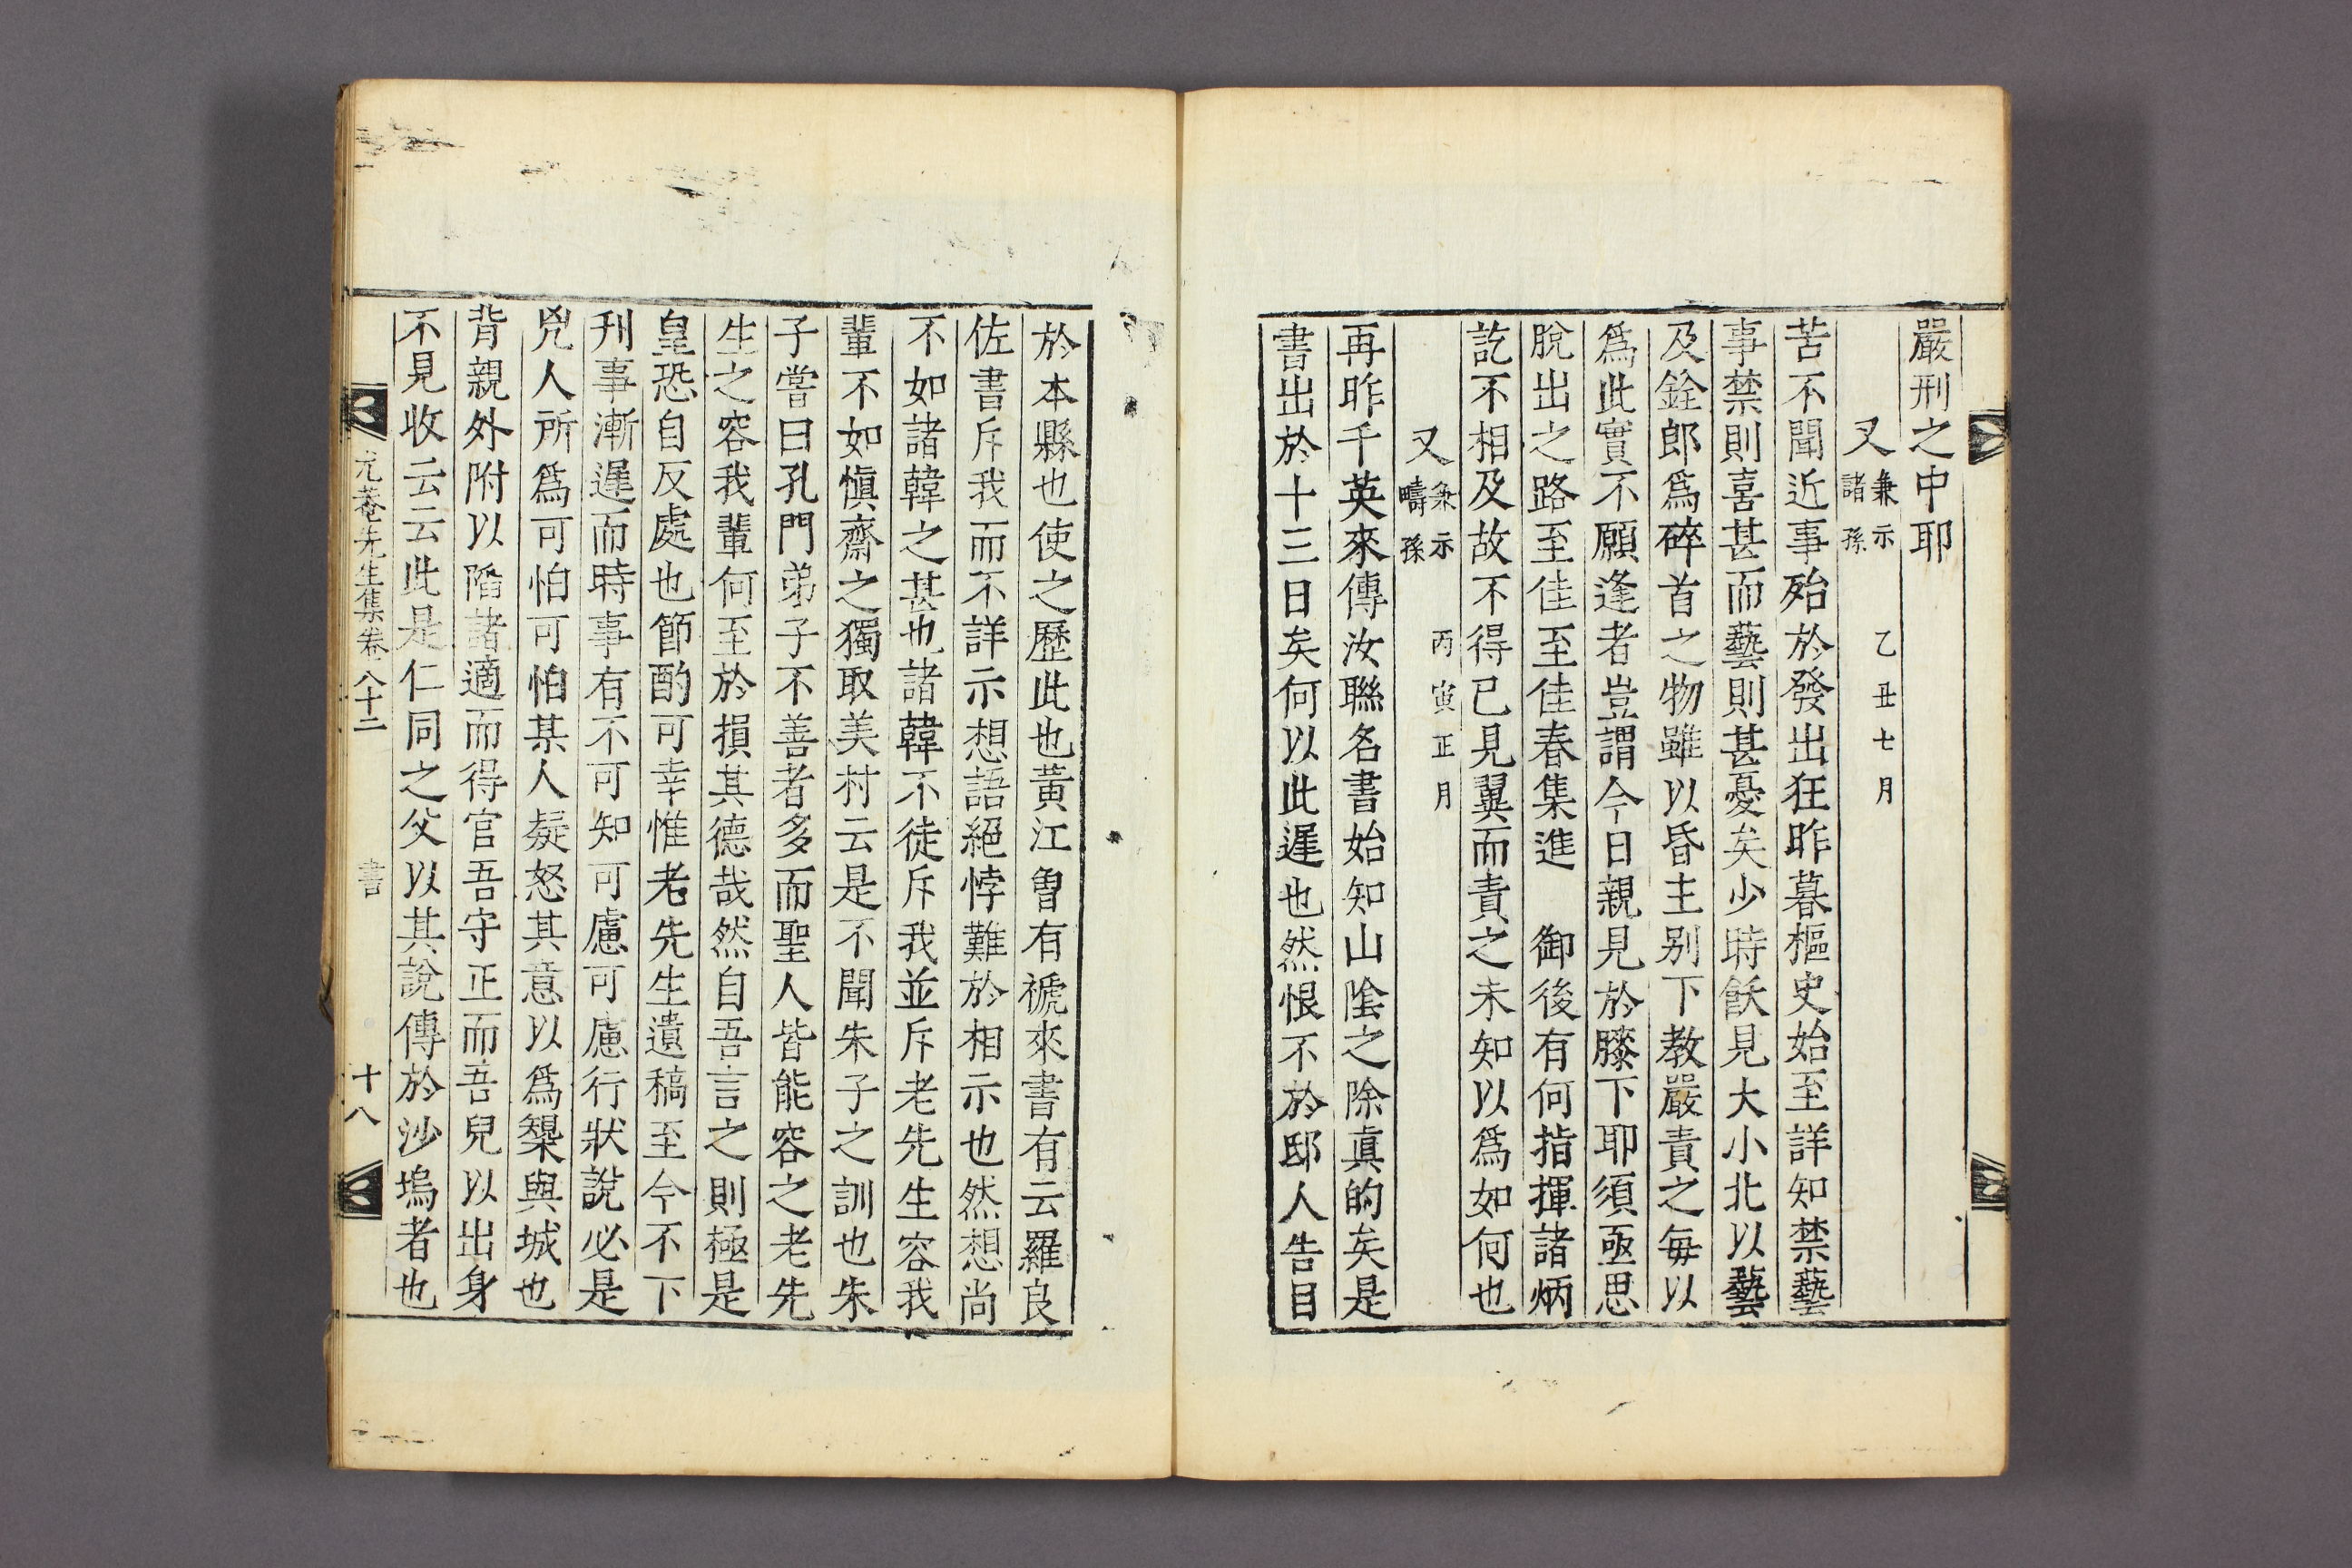 嚴刑之中耶
又 兼示諸孫 乙丑七月
苦不聞近事殆於發出狂昨暮樞史始至詳知禁藝
事禁則喜甚而藝則甚憂矣少時飫見大小北以藝
及銓郎爲碎首之物雖以昏主别下教嚴責之每以
爲此實不願逢者豈謂今日親見於膝下耶須亟思
脫出之路至佳至佳春集進 御後有何指揮諸炳
訖不相及故不得已見翼而責之未知以爲如何也
又 兼示疇孫 丙寅正月
再昨千英來傳汝聯名書始知山陰之除眞的矣是
書出於十三日矣何以此遲也然恨不於邸人告目
於本縣也使之歷此也黃江曾有褫來書有云羅良
佐書斥我而不詳示想語絕悖難於相示也然想尚
不如諸韓之甚也諸韓不徒斥我並斥老先生容我
輩不如愼齋之獨取美村云是不聞朱子之訓也朱
子嘗曰孔門弟子不善者多而聖人皆能容之老先
生之容我輩何至於損其德哉然自吾言之則極是
皇恐自反處也節酌可幸惟老先生遺稿至今不下
刊事漸遲而時事有不可知可慮可慮行狀說必是
兇人所爲可怕可怕某人疑怒其意以爲槩與城也
背親外附以陷諸適而得官吾守正而吾兒以出身
不見收云云此是仁同之父以其說傳於沙塢者也
尤菴先生集卷八十二 書 十八